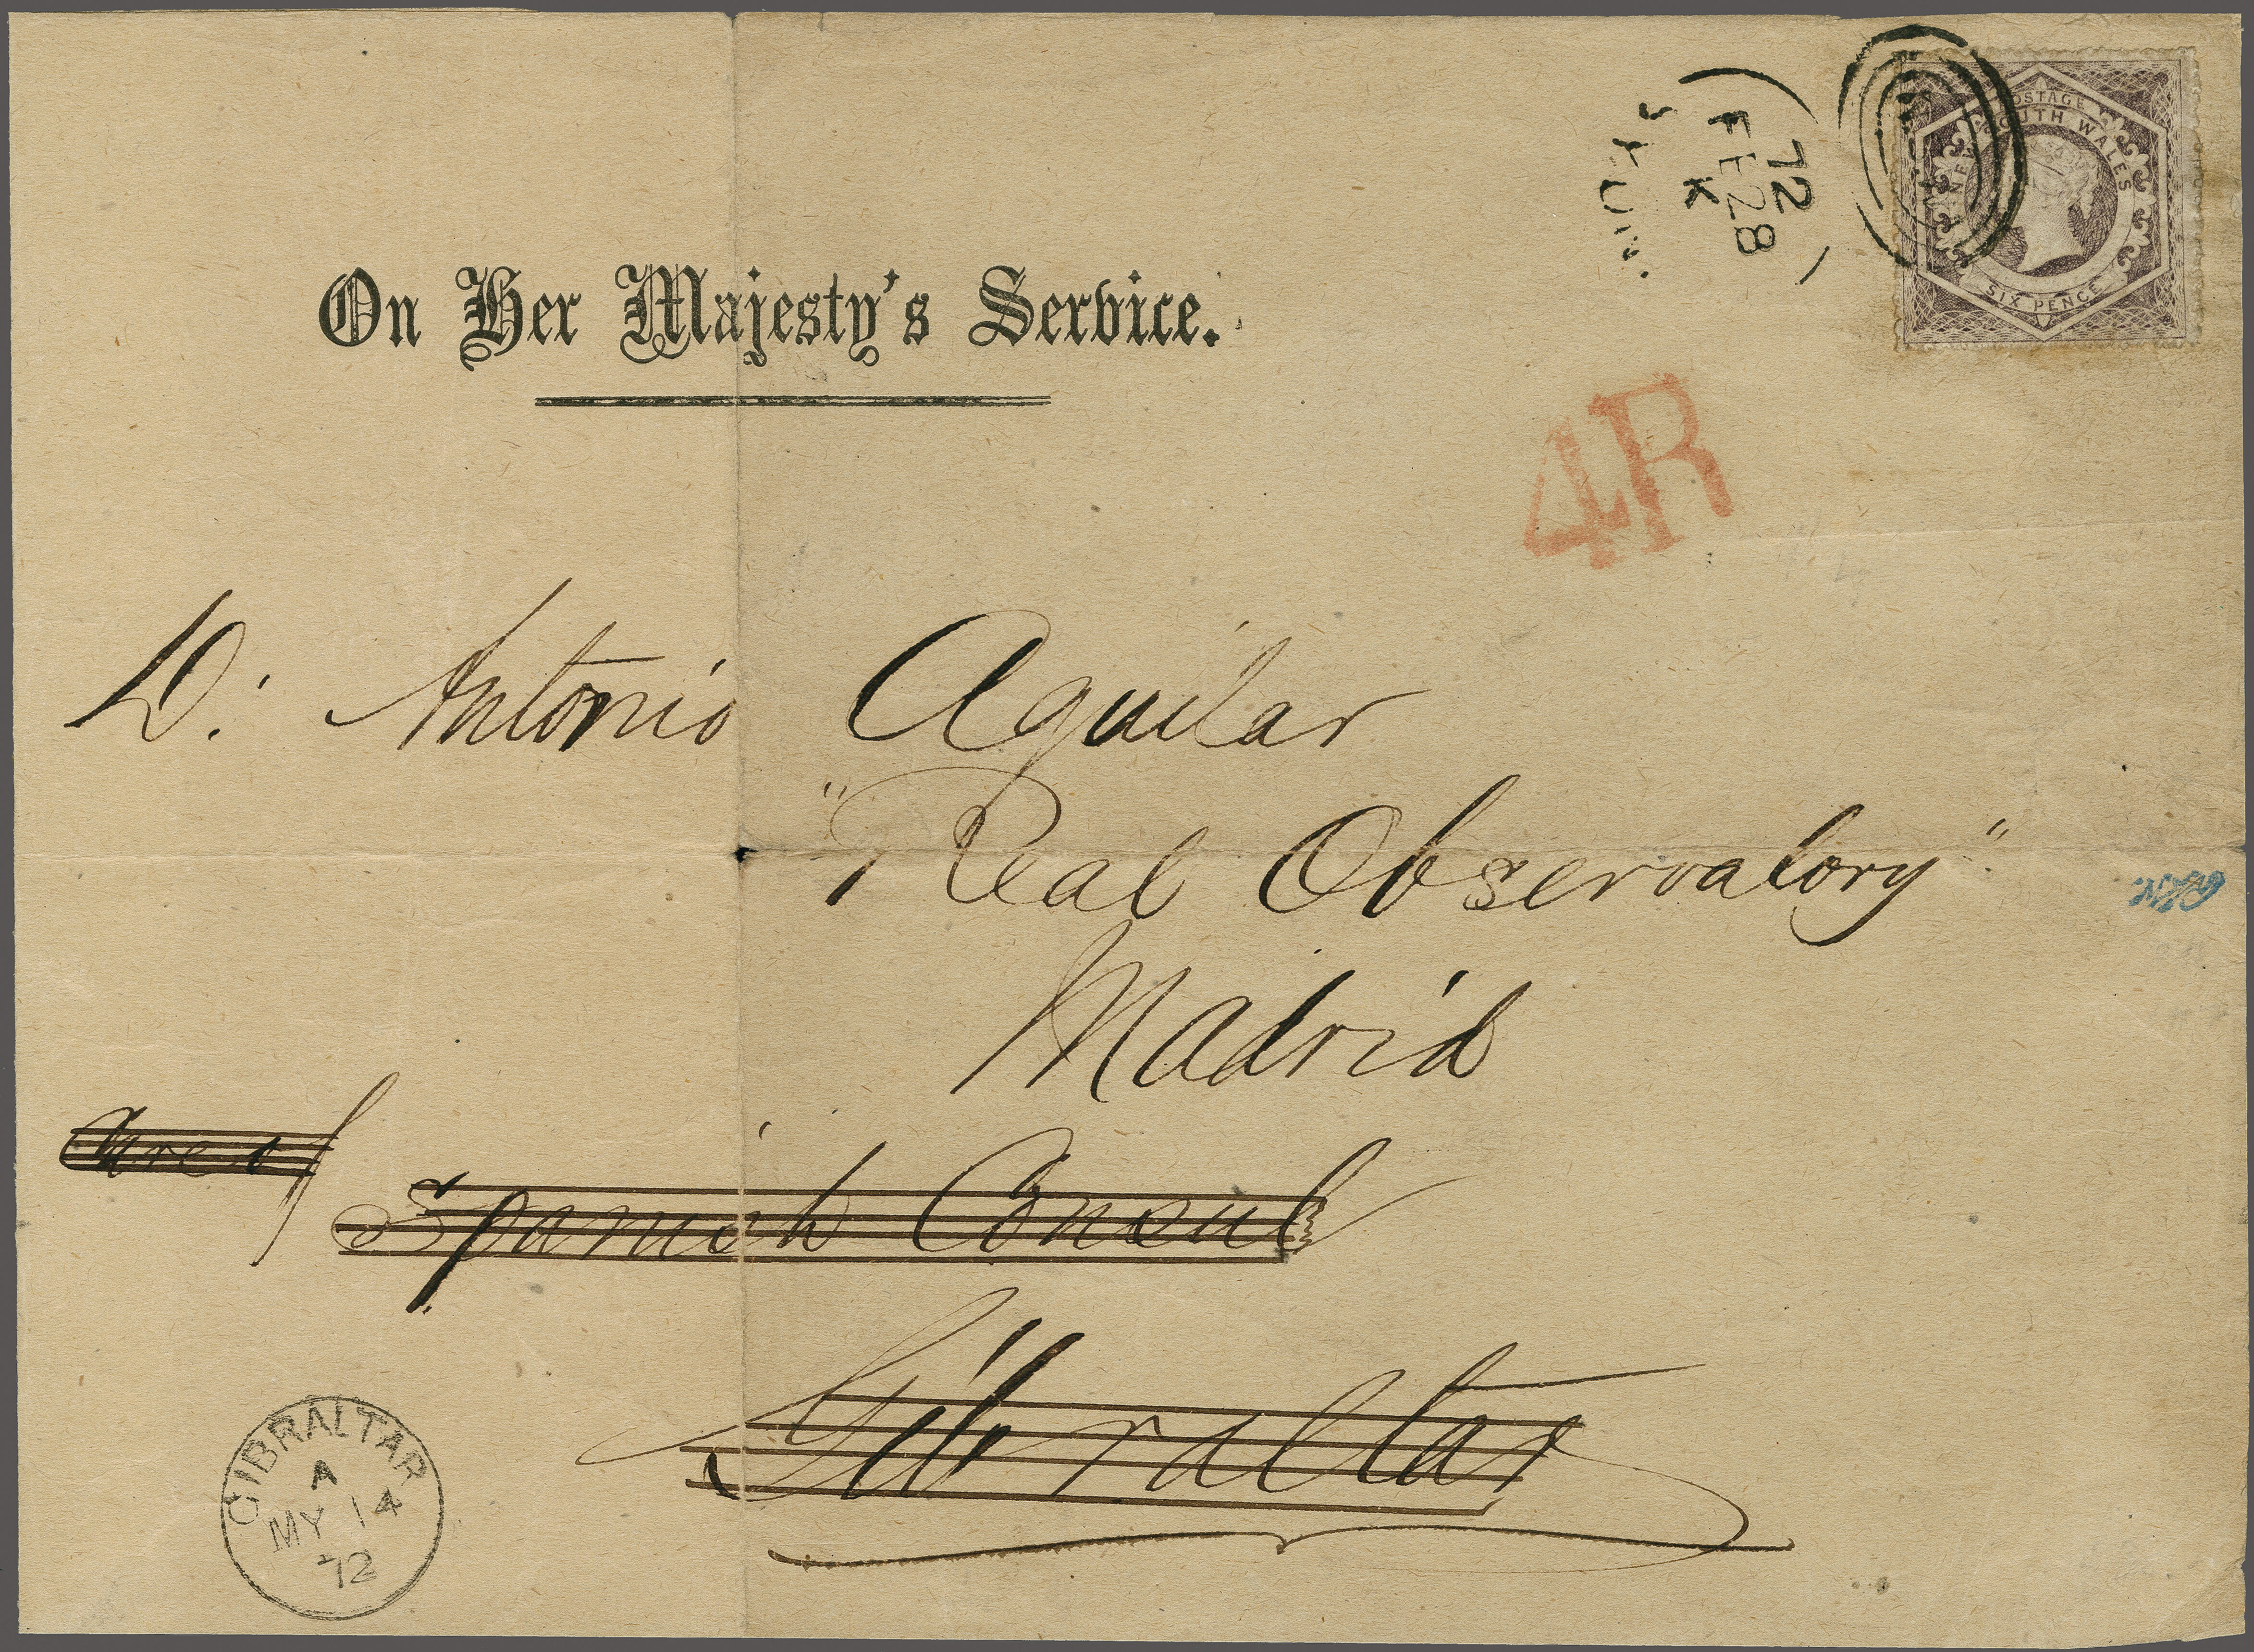 POSTAGE
SOUTH WALES
SIX PENCE
72
FE 28
K
On Her Majesty's Service.
4R
D. Antonio Aguilar
"Real Observatory"
Madrid
Care of
Spanish Consul
Gibraltar
GIBRALTAR
A
MY 14
72